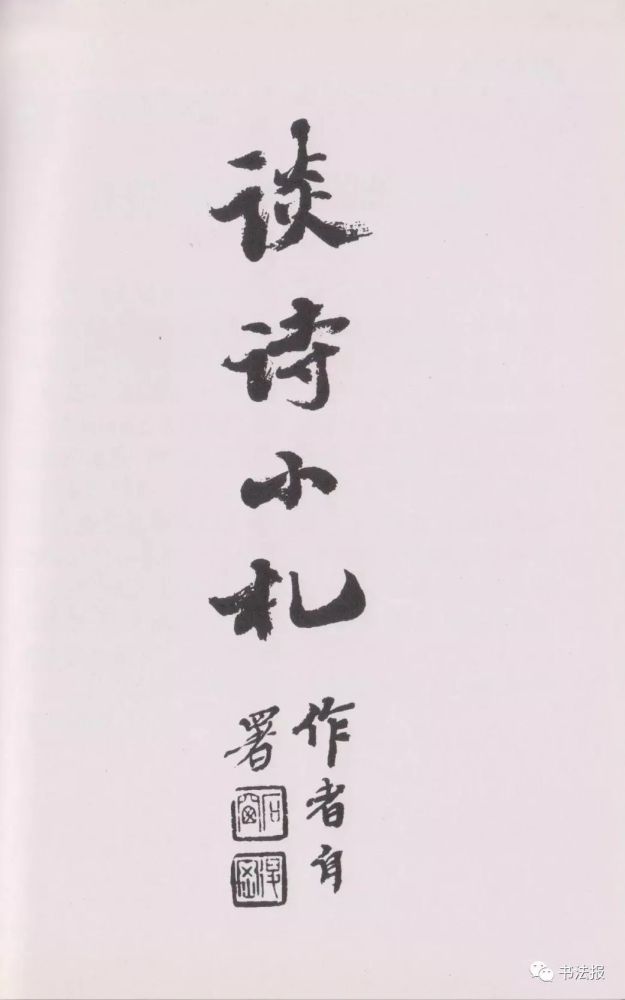 谈诗小札
作者自
署
书法报